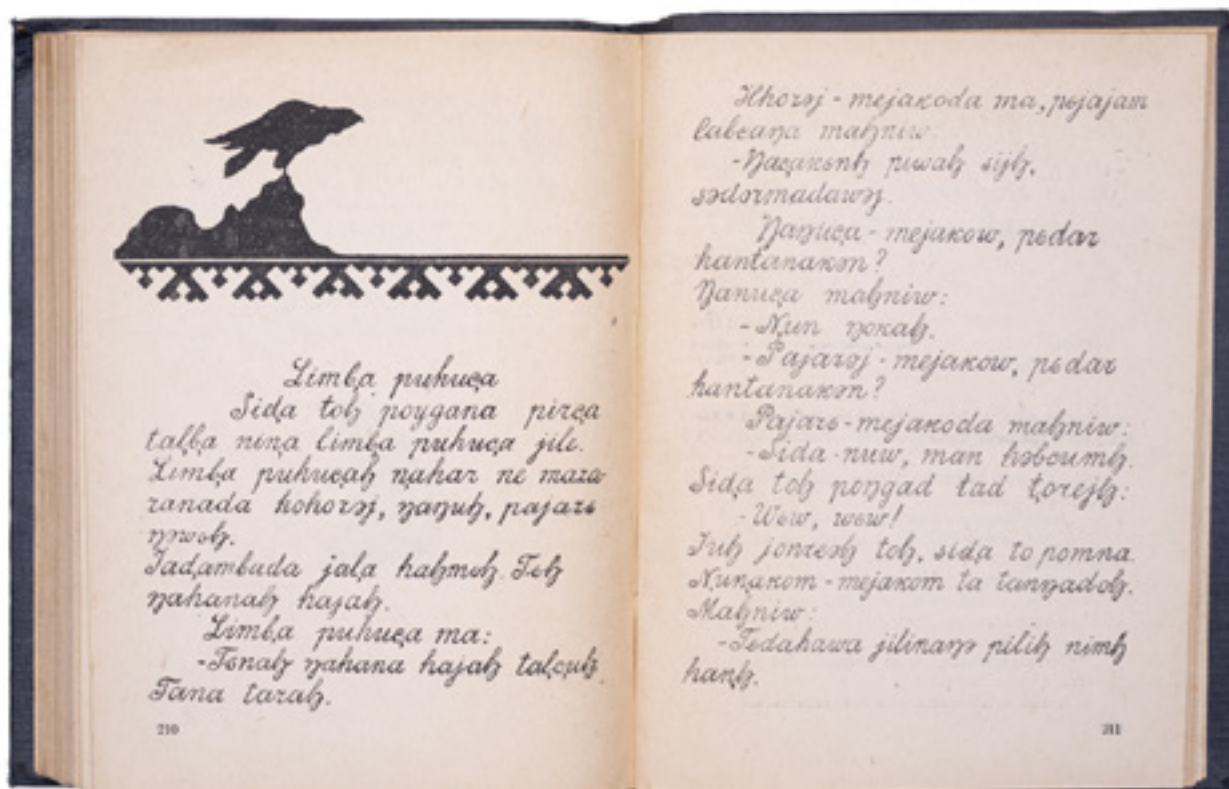 Limbạ puhuca̧
Sida̧ toꜧ poygana pirca̧
tal̦ba nin̦a limbạ puhuca̧ jilʙ.
Limbạ puhuca̧ꜧ n̦ahar ne maza-
ranada kohorəj, ŋaŋuꜧ, pajarʙ
Jadambuda jal̦a haꜧmʙꜧ. Tʙꜧ
ŋahanaꜧ hajaꜧ.
Limbạ puhuca̧ ma:
-Tʙnaꜧ ŋahana hajaꜧ tal̦cuꜧ.
Tana taraꜧ.
210
Hhorəj - mejakoda ma, pʙjajam
labcaŋa maꜧniw:
-Ŋaca̧kʙnꜧ piwaꜧ sijꜧ,
sədʙrmadawəj.
Ŋaŋuca̧ - mejakow, pʙdar
hantanakən?
Ŋanuca̧ maꜧniw:
- Nun ŋokaꜧ.
- Pajarəj - mejakow, pʙdar
hantanakən?
Pajarʙ - mejakoda maꜧniw:
- Sida nuw, man həbcumꜧ.
Sida̧ toꜧ poŋgad tad țorejꜧ:
- Wʙw, wʙw!
toꜧ, sida̧ to pomna.
Nun̦akom - mejakom ta tanŋadoꜧ.
Maꜧniw:
-Tʙdahawa jilinaŋə piliꜧ nimꜧ
han̦ꜧ.
211